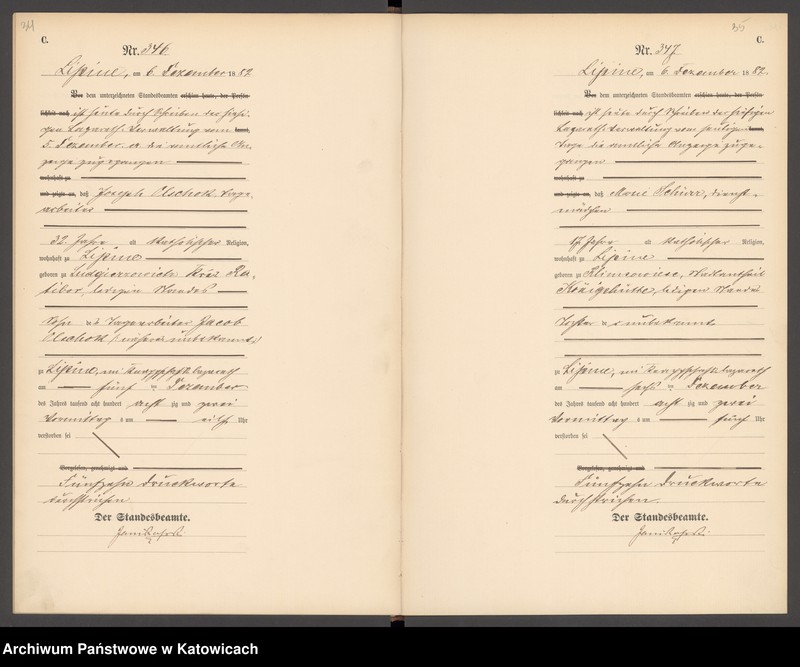 34
C.
Nr. 346
Lipine, am 6. Dezember 1882
Vor dem unterzeichneten Standesbeamten erschien heute, der Persön-
lichkeit nach ist heute durch Schreiben der hiesi-
gen Lazareth-Verwaltung vom kannt,
5. Dezember die amtliche An-
zeige zugegangen
wohnhaft zu
und zeigte an, daß Joseph Tage-
arbeiter
32 Jahre alt katholischer Religion,
wohnhaft zu Lipine
geboren zu Kreis Ra-
tibor, ledigen Standes
Sohn des Tagearbeiter Jacob
unbekannt)
zu Lipine, im Knappschafts-Lazareth
am fünf ten Dezember
des Jahres tausend acht hundert acht zig und zwei
Vormittag s um Uhr
verstorben sei
Vorgelesen, genehmigt und
Fünfzehn Druckworte
durchstrichen.
Der Standesbeamte.
35
C.
Nr. 347
Lipine, am 6. Dezember 1882.
Vor dem unterzeichneten Standesbeamten erschien heute, der Persön-
lichkeit nach ist heute durch Schreiben der hiesigen
Lazareth-Verwaltung vom heutigen kannt,
Tage die amtliche Anzeige zuge-
gangen
wohnhaft zu
und zeigte an, daß Marie Dienst-
mädchen
17 Jahre alt katholischer Religion,
wohnhaft zu Lipine
geboren zu Stadtantheil
Königshütte, ledigen Standes
Tochter des unbekannt
zu Lipine, im Knappschafts-Lazareth
am sechs ten Dezember
des Jahres tausend acht hundert acht zig und zwei
Vormittag s um Uhr
verstorben sei
Vorgelesen, genehmigt und
Fünfzehn Druckworte
durchstrichen.
Der Standesbeamte.
Archiwum Państwowe w Katowicach